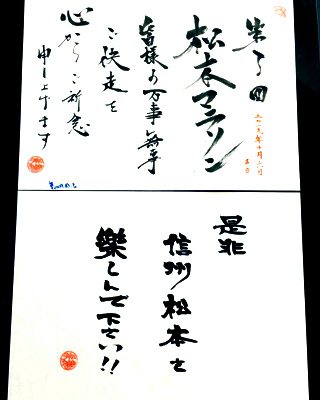 第3回
松本マラソン
二〇一九年十月六日
皆様の万事無事
ご快走を
心からご祈念
申し上げます
是非
信州松本を
樂しんで下さい!!